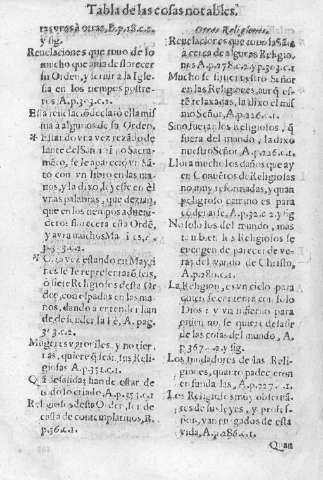 Tabla de las cosas notables.
ras vros à otras, B.p.18.c.2.
y sig.
Reuelaciones que tuuo de lo
mucho que auia de florecer
su Orden, y seruir a la Igle-
sia en los tiempos postre-
ros, A.p.353.c.1.
Esta reuelació declaró ella mis
ma à algunos de su Orden.
Estando vna vez rezádo de
lante del San
méto, se le apareció vn Sá-
to con vn libro en las ma-
nos, y la dixo, leyesse en èl
vnas palabras, que dezian,
que en los tiempos adueni-
deros florecera esta Ordé,
y avra muchos Martires, A.
p.353.c.2.
Otra vez estando en May
tines se le representaró seis,
ò siete Religiosos desta Or
den, con espadas en las ma-
nos, dando a entender han
de defender la Fè, A. pag.
353.c.2.
Mugeres y no tier
nas, quiere q̃ seá sus Reli-
giosas A.p.351.c.1.
Quá desasidas han de estar de
todo lo criado, A.p.353.c.1
Religiosos desta Orden, ser de
casta de contemplatiuos, B.
p.36.c.1.
otros Religiosos.
Reuelaciones que tuuo la Sá-
a cerca de algunas Religio-
nes A.p.278.c.2.y p.353.c.2.
Mucho se sirue nuestro Señor
en las Religiones, aunq̃ es-
té relaxagas, la dixo el mis
mo Señor, A.p.226.c.1.
Sino fueran los Religiosos, q̃
fuera del mundo, la dixo
nuestro Señor, A.p.226.c.1.
Llora mucho los daños que ay
en Conuétos de Religiosas
no muy reformadas, y quan
peligroso camino es para
condenarse, A.p.32.c.2.y sig
No solo los del mundo, mas
tambien los Religiosos se
averguençan de parecer de ve-
ras del vando de Christo,
A.p.280.c.1.
La Religion, es vn cielo para
quien se contenta con solo
Dios: y vn infierno para
quien no se quiere desasir
de las cosas del mundo, A.
p.367.c.2.y sig.
Los fundadores de las Reli-
giones, quanto padecieron
en fundarlas, A.p.227.c.1.
Los Religiosos muy obserua-
tes de sus leyes, y profes-
sion, van engañados de esta
vida, A.p.286.c.1.
Quan